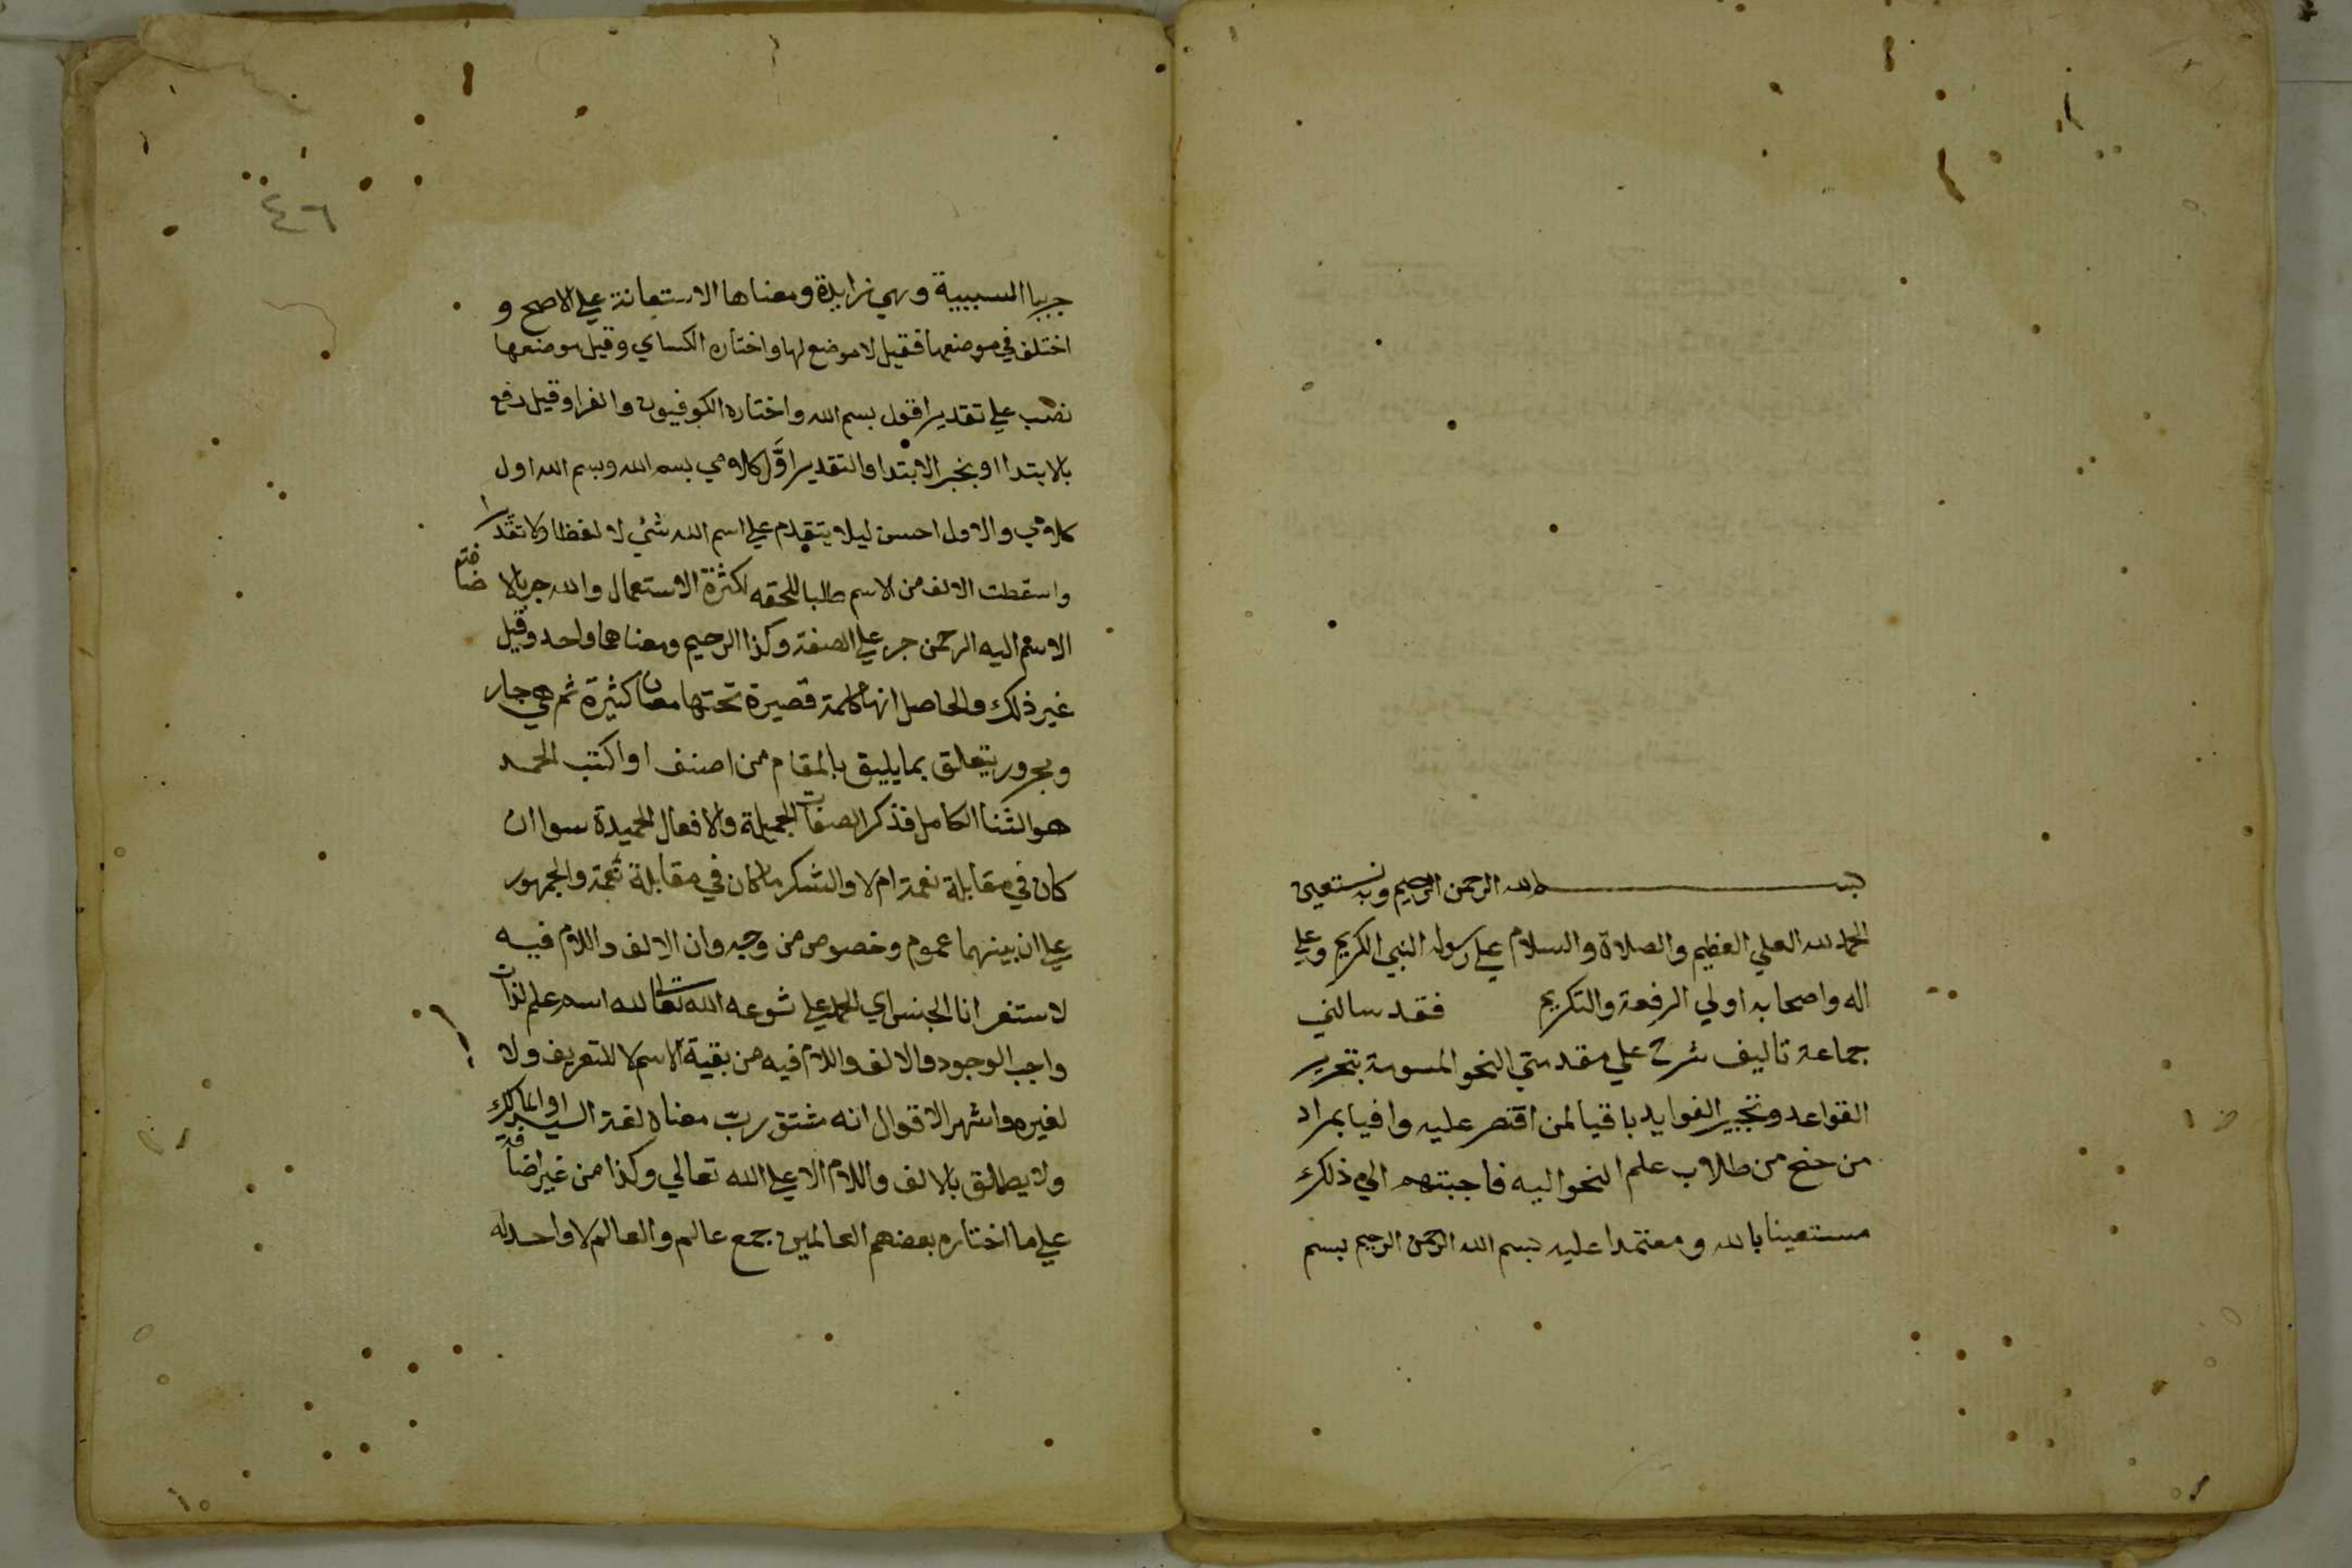 بسم الله الرحمن الرحيم وبه نستعين
الحمد لله العلي العظيم والصلاة والسلام علي رسوله النبي الكريم وعلي
اله واصحابه اولي الرفعة والتكريم فقد سالني
جماعة تاليف شرح علي مقدمتي النحو المسومة بتحرير
القواعد وتحبير الفوايد باقيا لمن اقتصر عليه وافيا بمراد
من جنح من طلاب علم النحو اليه فاجبتهم الي ذلك
مستعينا بالله ومعتمدا عليه بسم الله الرحمن الرحيم بسم
٤٦
جر ببا السببية وهي زايدة ومعناها الاستعانة علي الاصح و
اختلف في موضعها فقيل لا موضع لها واختاره الكساي وقيل موضعها
نصب علي تقدير اقول بسم الله واختاره الكوفيون والفرا وقيل رفع
بالابتدا او بخبر الابتدا والتقدير اوَّل كلامي بسم الله وبسم الله اول
كلامي والاول احسن ليلا يتقدم علي اسم الله شئ لا لفظا ولا تقديرا
واسقطت الالف من الاسم طلبا للخفه لكثرة الاستعمال والله جر بالاضافة
الاسم اليه الرحمن جر علي الصفة وكذا الرحيم ومعناهما واحد وقيل
غير ذلك والحاصل انها كلمة قصيرة تحتها معان كثيرة ثم هي جار
ومجرور يتعلق بما يليق بالمقام من اصنف او اكتب الحمد
هو الثنا الكامل فذكر الصفات الجميلة والافعال الحميدة سوا ان
كان في مقابلة نعمة ام لا والشكر ما كان في مقابلة نعمة والجمهور
علي ان بينهما عموم وخصوص من وجه وان الالف واللام فيه
لاستغراق الجنس اي الحمد علي تنوعه الله تعالي لله اسم علم لذات
واجب الوجود والالف واللام فيه من بقية الاسم لا للتعريف ولا
لغيره واشهر الاقوال انه مشتق رب معناه لغة السيد او المالك
ولا يطلق بالالف واللام الا علي الله تعالي وكذا من غير اضافة
علي ما اختاره بعضهم العالمين جمع عالم والعالم لا واحد له